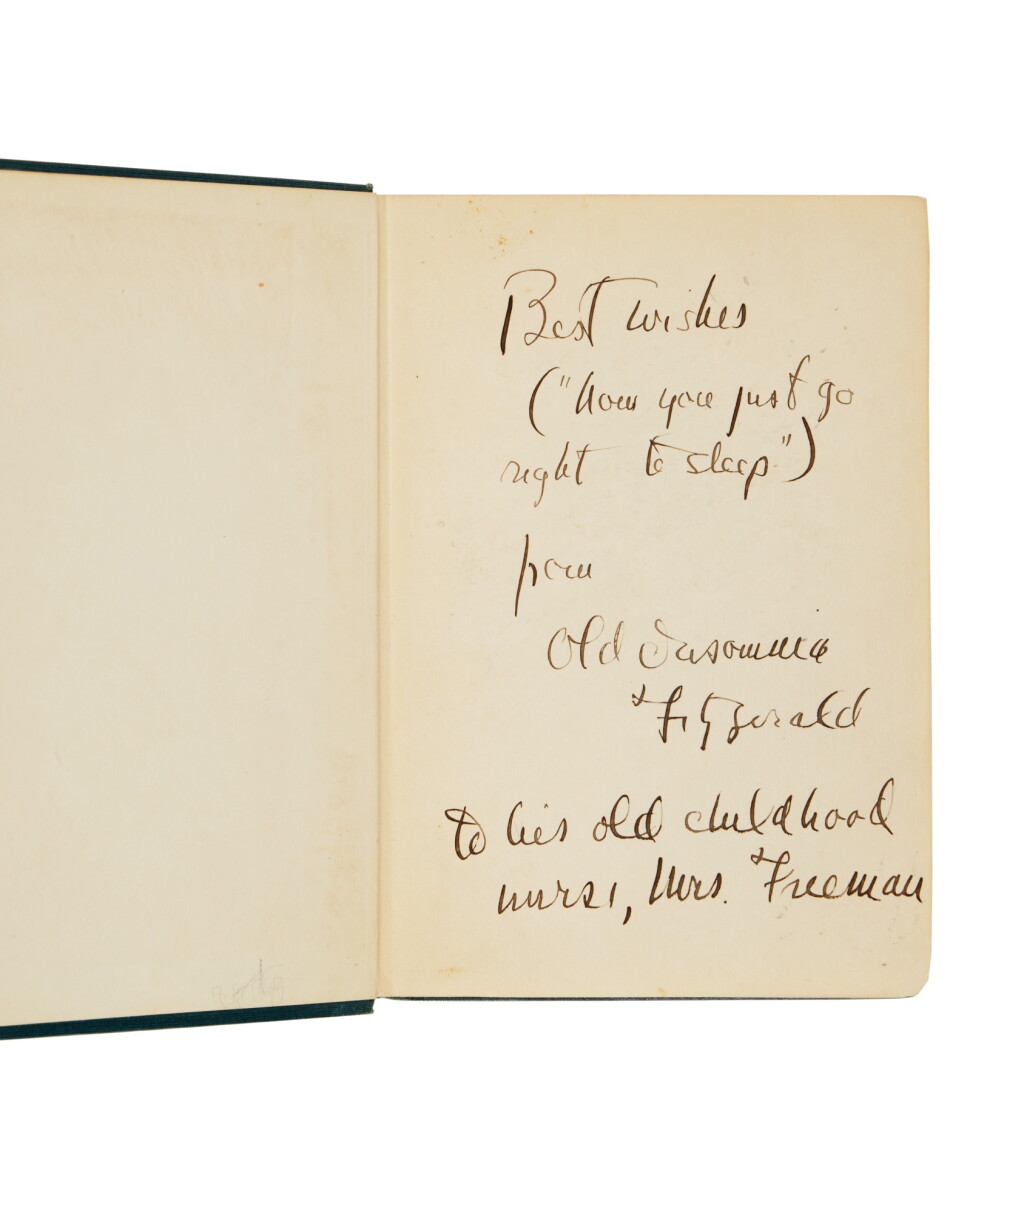 Best wishes
("Now you just go
right to sleep")
from
Old Insomnia
Fitzgerald
to his old childhood
nurse, Mrs. Freeman